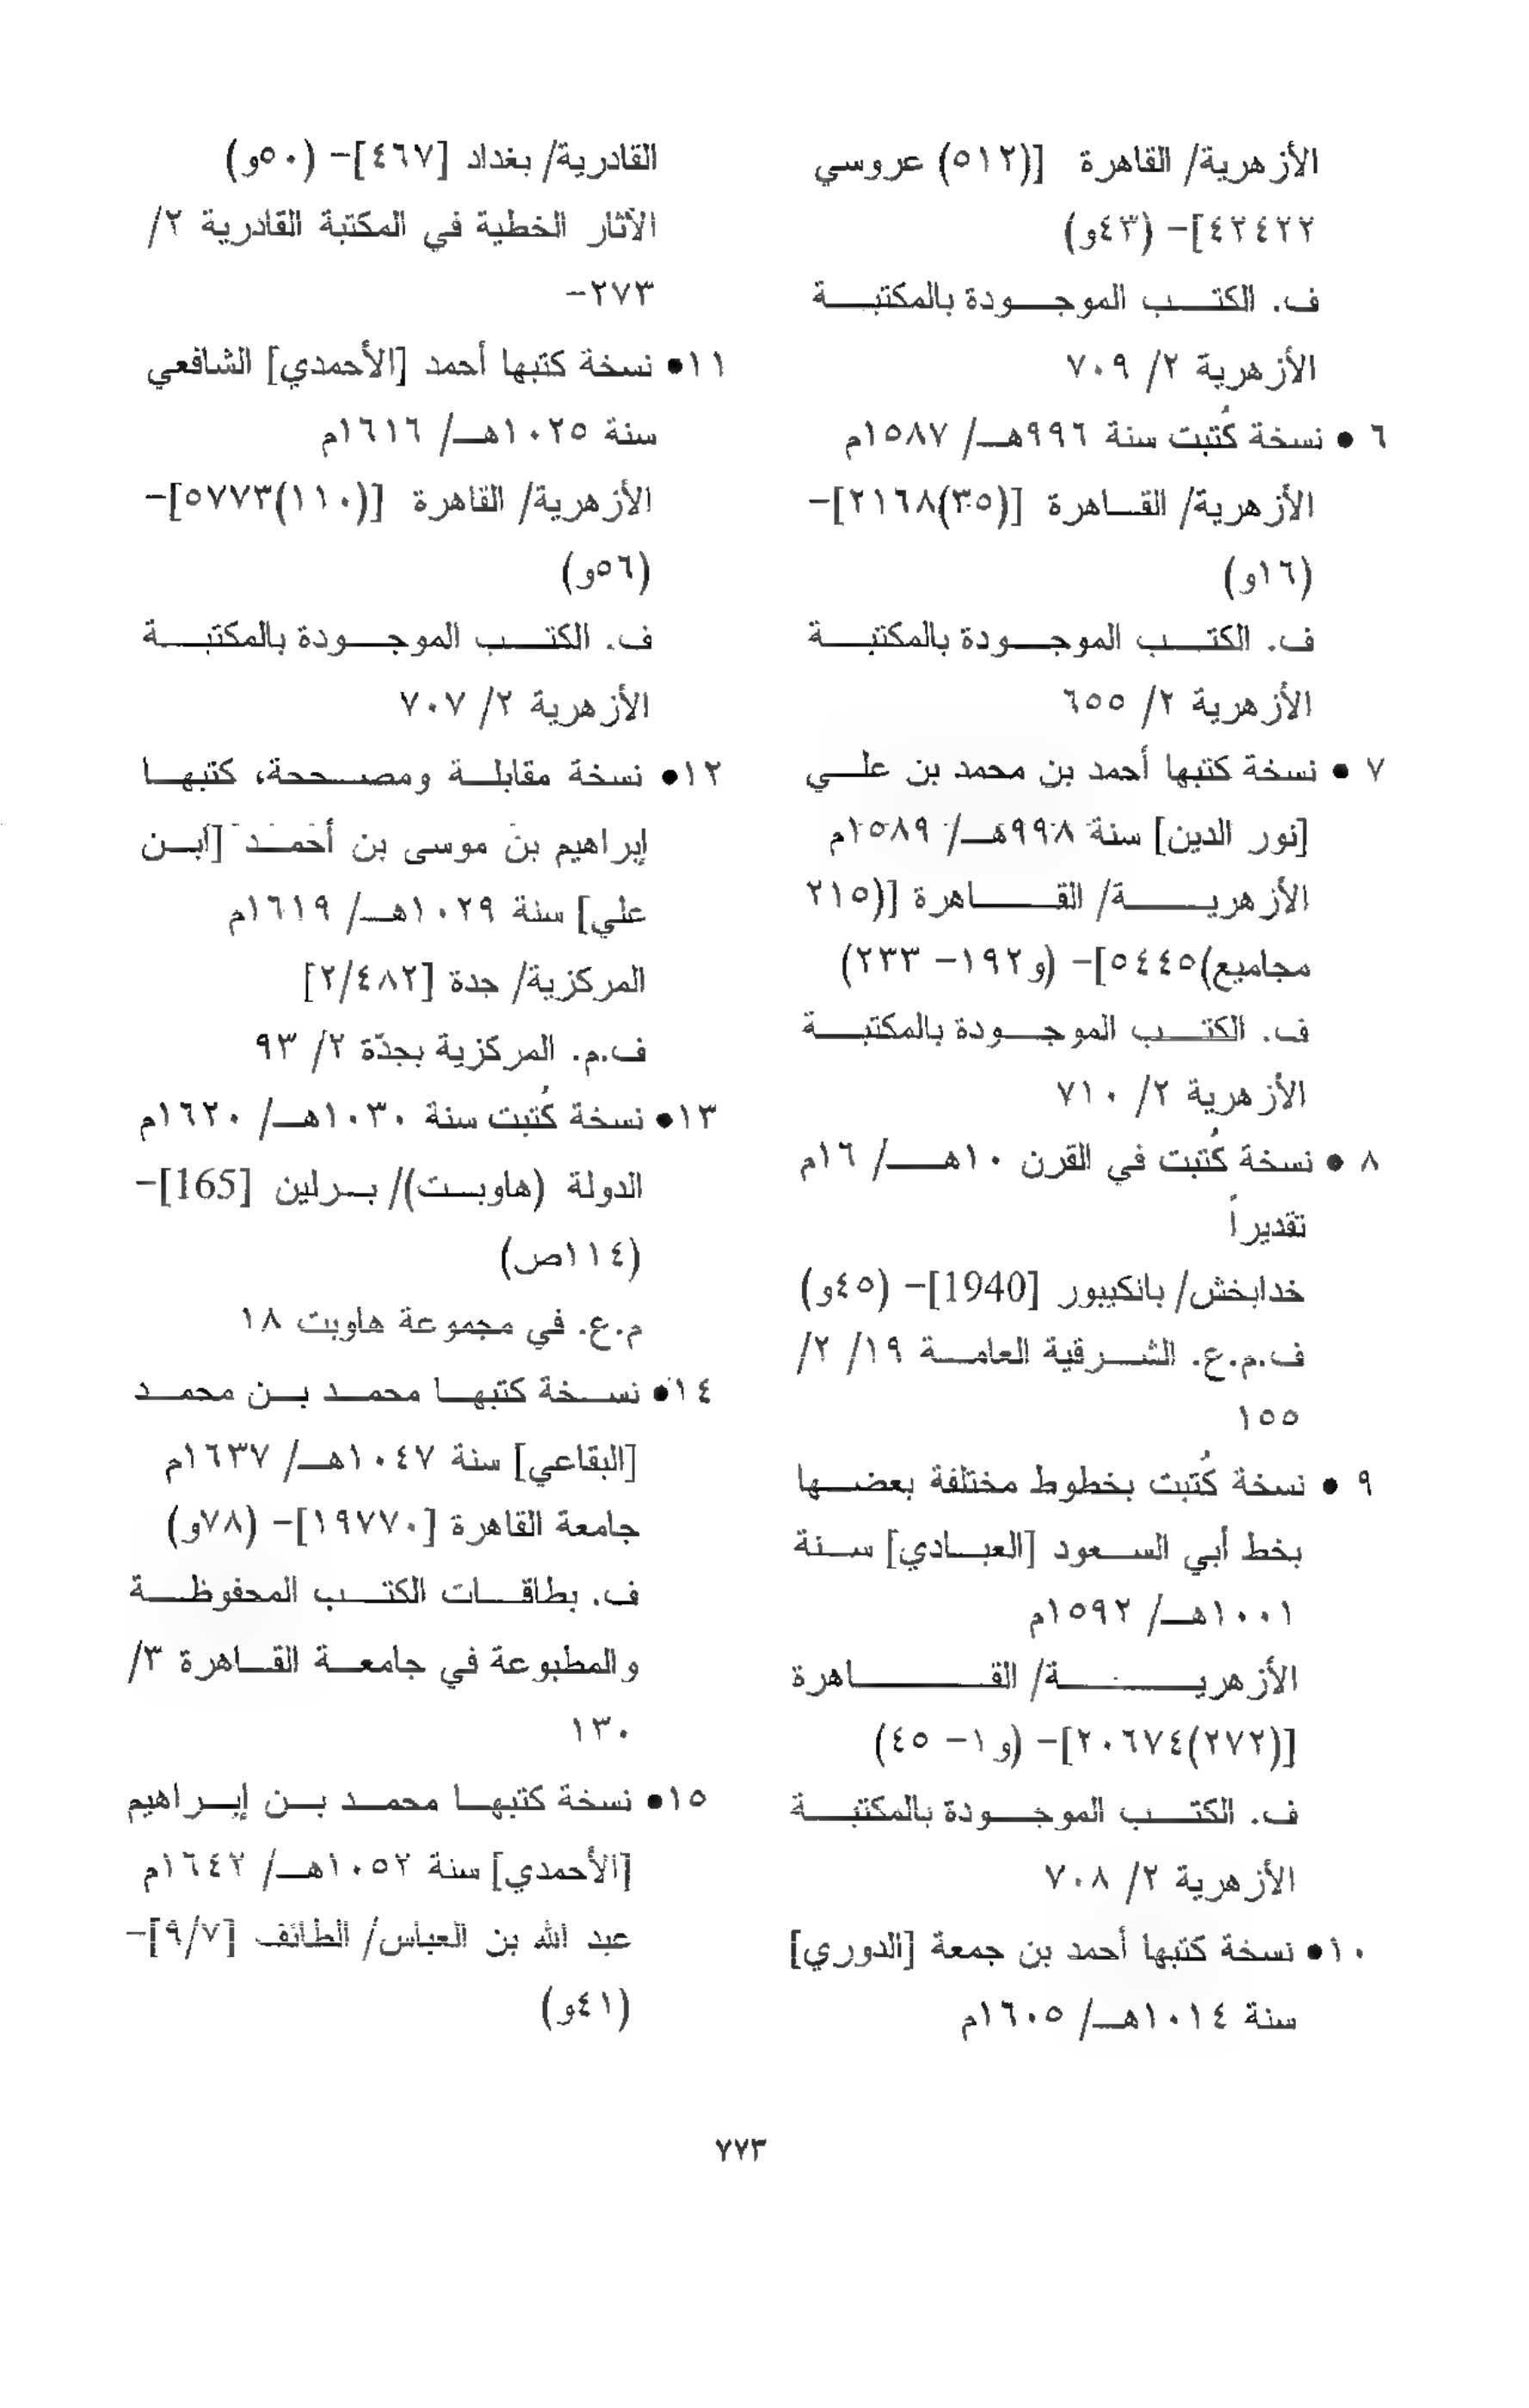 الأزهرية/ القاهرة [(٥١٢) عروسي
٤٢٤٢٢]- (٤٣و)
ف. الكتب الموجودة بالمكتبة
الأزهرية ٢/ ٧٠٩
٦ ● نسخة كُتبت سنة ٩٩٦هـ/ ١٥٨٧م
الأزهرية/ القاهرة [(٣٥)٢١٦٨]-
(١٦و)
ف. الكتب الموجودة بالمكتبة
الأزهرية ٢/ ٦٥٥
٧ ● نسخة كتبها أحمد بن محمد بن علي
[نور الدين] سنة ٩٩٨هـ/ ١٥٨٩م
الأزهرية/ القاهرة [(٢١٥
مجاميع)٥٤٤٥]- (و١٩٢- ٢٣٣)
ف. الكتب الموجودة بالمكتبة
الأزهرية ٢/ ٧١٠
٨ ● نسخة كُتبت في القرن ١٠هـ/ ١٦م
تقديراً
خدابخش/ بانكيبور [1940]- (٤٥و)
ف.م.ع. الشرقية العامة ١٩/ ٢/
١٥٥
٩ ● نسخة كُتبت بخطوط مختلفة بعضها
بخط أبي السعود [العبادي] سنة
١٠٠١هـ/ ١٥٩٢م
الأزهرية/ القاهرة
[(٢٧٢)٢٠٦٧٤]- (و١- ٤٥)
ف. الكتب الموجودة بالمكتبة
الأزهرية ٢/ ٧٠٨
١٠● نسخة كتبها أحمد بن جمعة [الدوري]
سنة ١٠١٤هـ/ ١٦٠٥م
القادرية/ بغداد [٤٦٧]- (٥٠و)
الآثار الخطية في المكتبة القادرية ٢/
٢٧٣-
١١● نسخة كتبها أحمد [الأحمدي] الشافعي
سنة ١٠٢٥هـ/ ١٦١٦م
الأزهرية/ القاهرة [(١١٠)٥٧٧٣]-
(٥٦و)
ف. الكتب الموجودة بالمكتبة
الأزهرية ٢/ ٧٠٧
١٢● نسخة مقابلة ومصححة، كتبها
إبراهيم بن موسى بن أحمد [ابن
علي] سنة ١٠٢٩هـ/ ١٦١٩م
المركزية/ جدة [٢/٤٨٢]
ف.م. المركزية بجدّة ٢/ ٩٣
١٣● نسخة كُتبت سنة ١٠٣٠هـ/ ١٦٢٠م
الدولة (هاوبت)/ برلين [165]-
(١١٤ص)
م.ع. في مجموعة هاوبت ١٨
١٤● نسخة كتبها محمد بن محمد
[البقاعي] سنة ١٠٤٧هـ/ ١٦٣٧م
جامعة القاهرة [١٩٧٧٠]- (٧٨و)
ف. بطاقات الكتب المحفوظة
والمطبوعة في جامعة القاهرة ٣/
١٣٠
١٥● نسخة كتبها محمد بن إبراهيم
[الأحمدي] سنة ١٠٥٢هـ/ ١٦٤٢م
عبد الله بن العباس/ الطائف [٩/٧]-
(٤١و)
٧٧٣